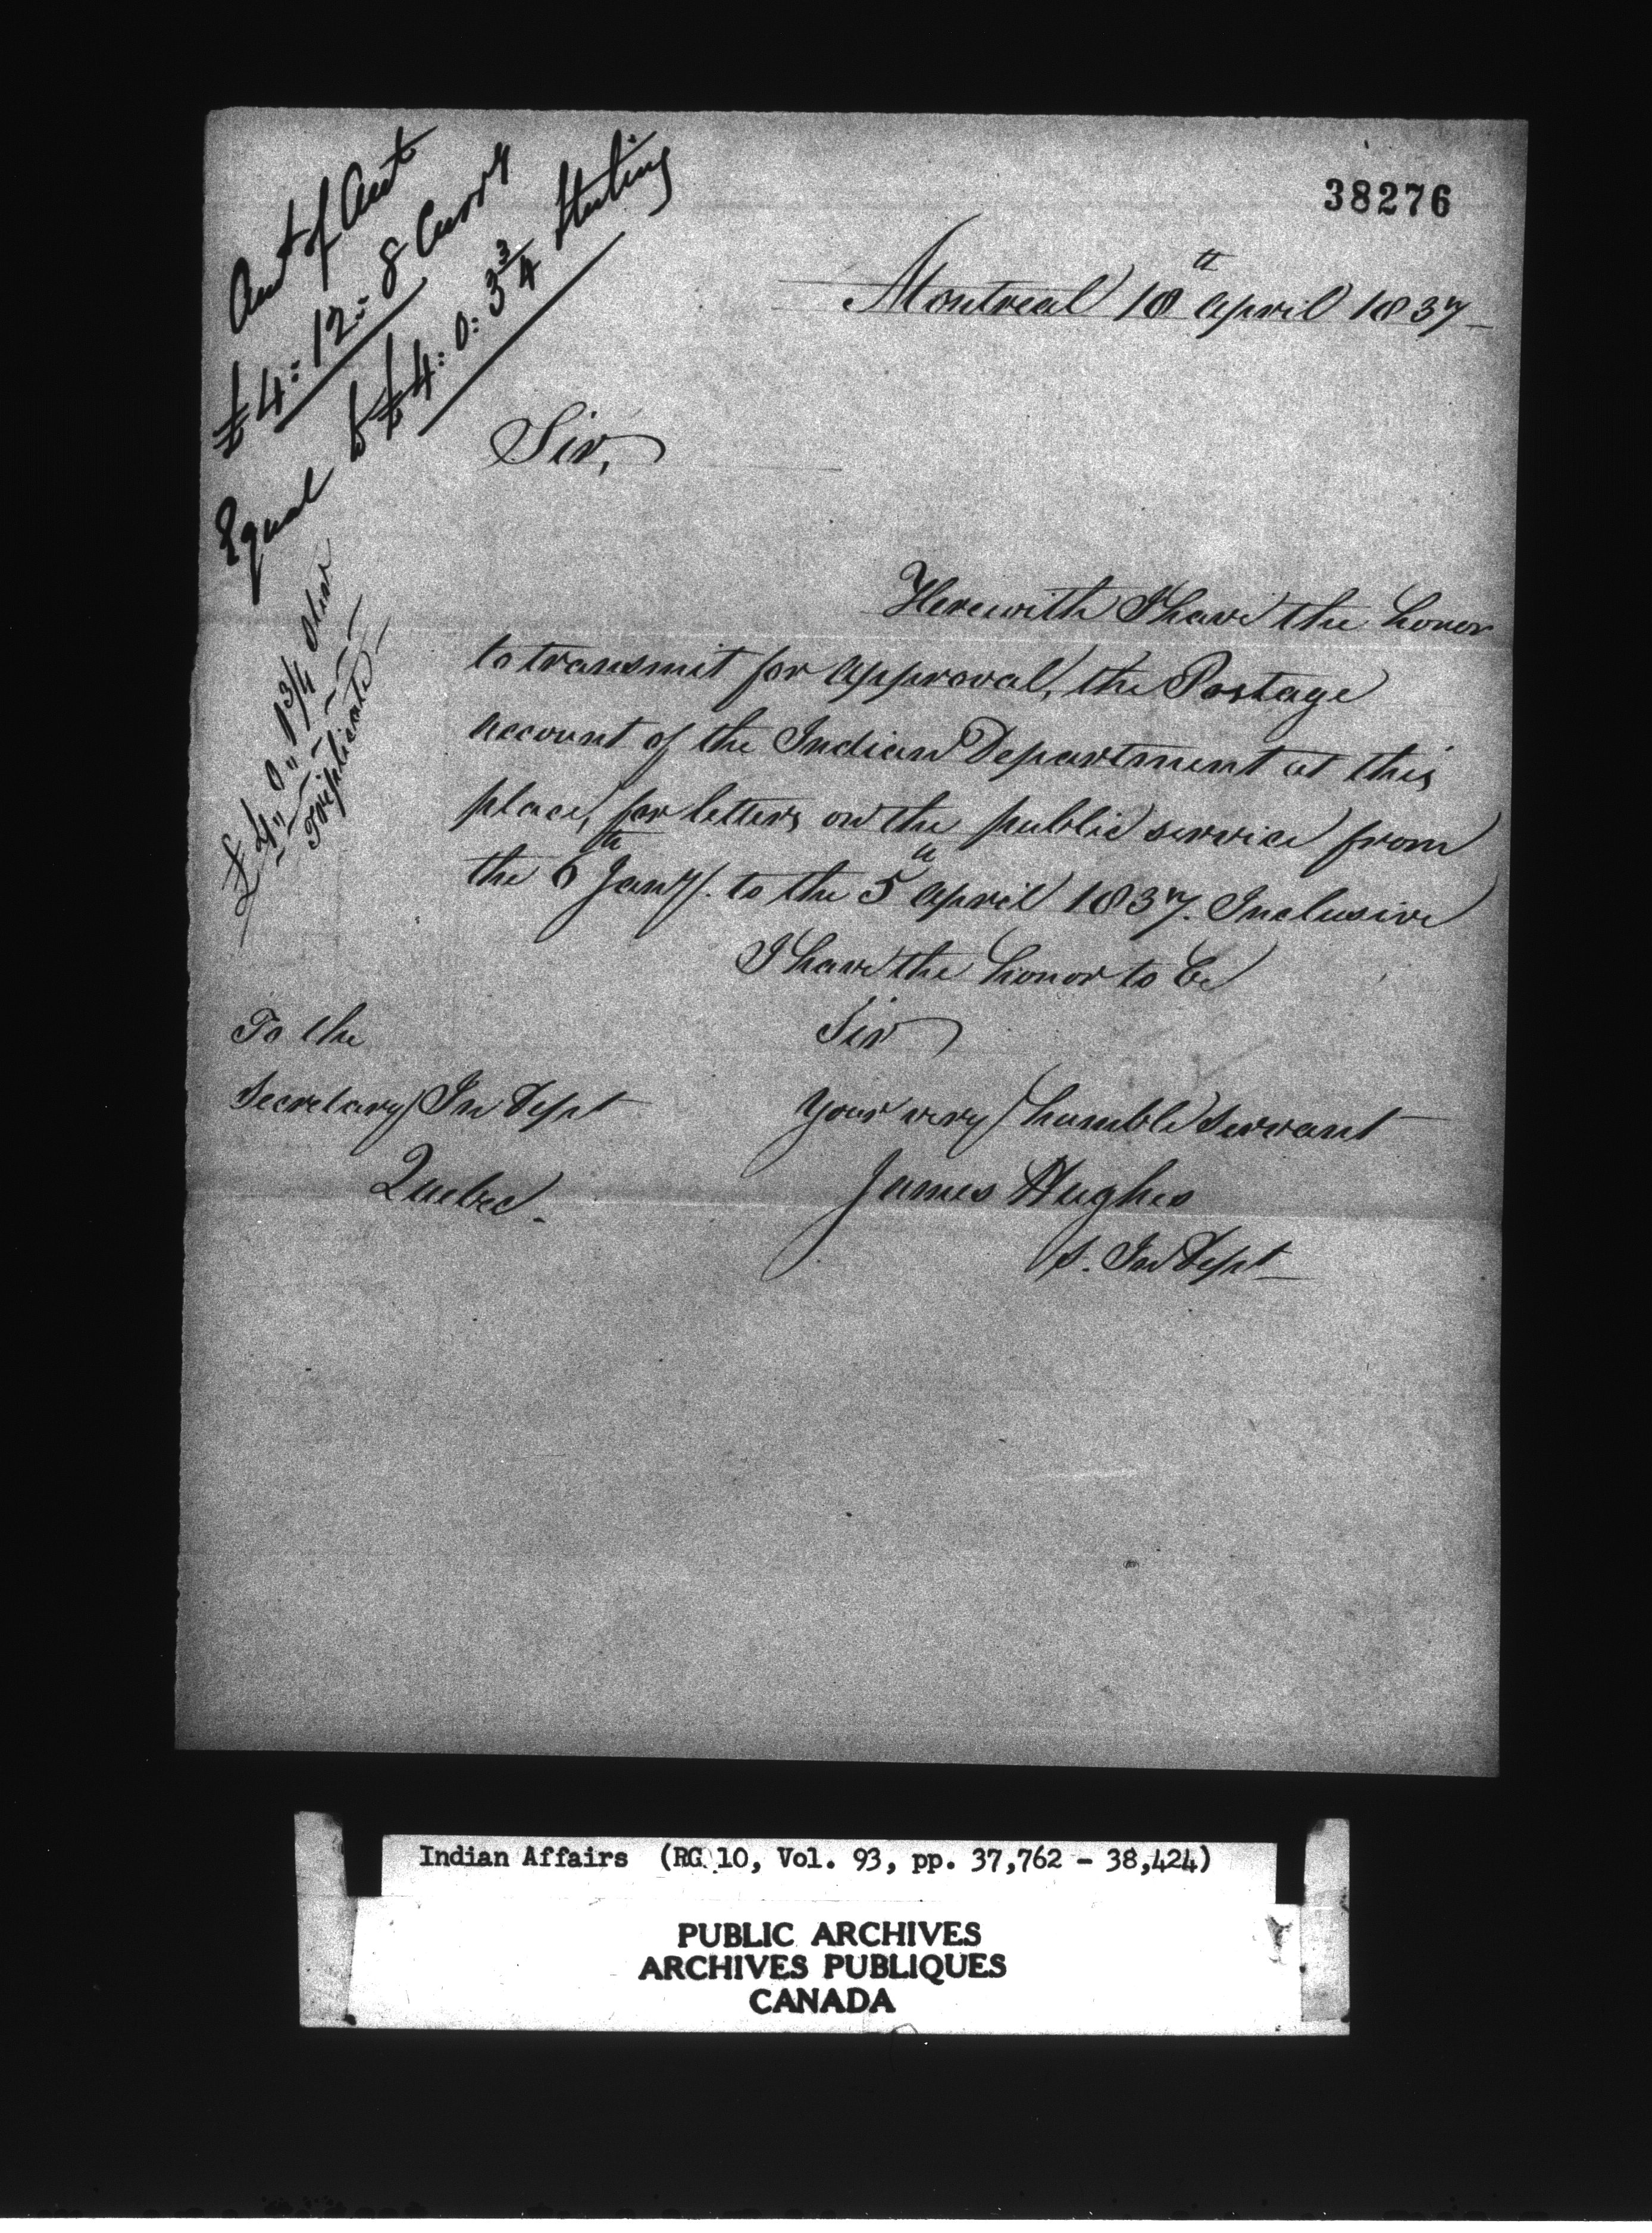 38276
Amt of Acct
£4:12:8 Curry
Equal to £4:0:3 3/4 Sterling
£4" 0" 1 3/4
Triplicate
Montreal 18th April 1837
Sir,
Herewith I have the honor
to transmit for approval, the Postage
account of the Indian Department at this
place, for letters on the public service from
the 6th Jany. to the 5th April 1837. Inclusive
I have the honor to be
Sir
Your very humble Servant
James Hughes
S. In Dept
To the
Secretary In Dept
Quebec.
Indian Affairs (RG 10, Vol. 93, pp. 37,762 - 38,424)
PUBLIC ARCHIVES
ARCHIVES PUBLIQUES
CANADA